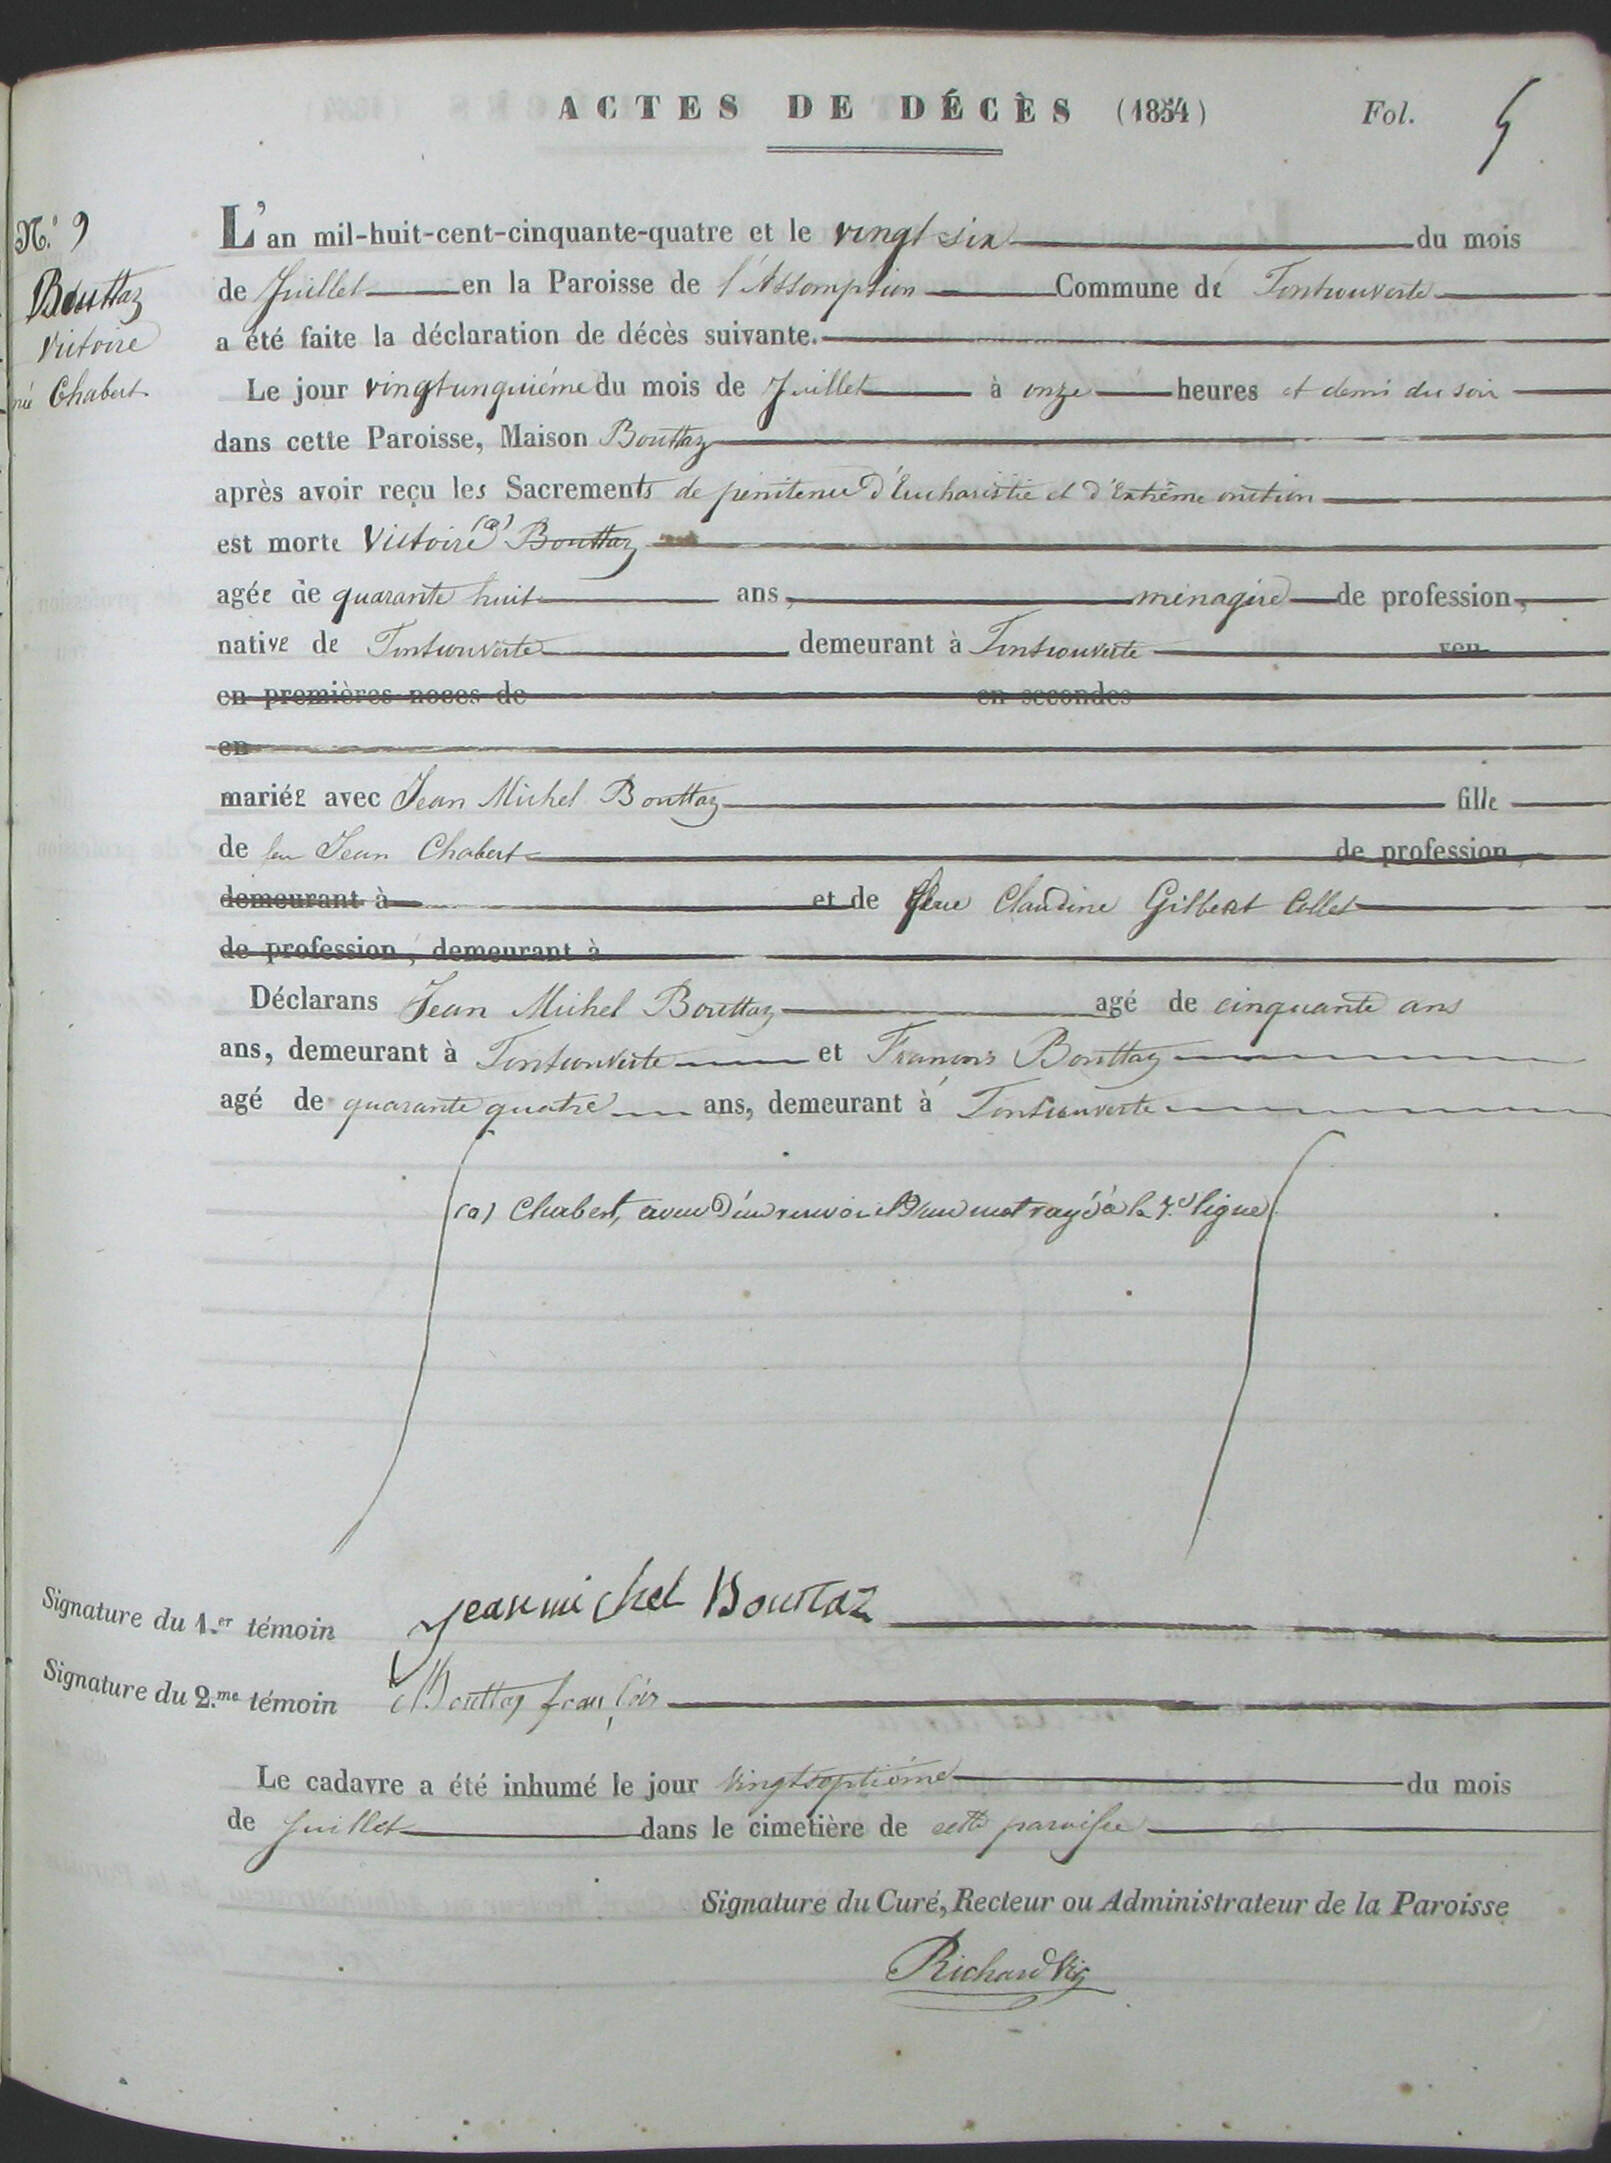 ACTES DE DÉCÈS (1854) Fol. 5
N.° 9
Bouttaz
Victoire
née Chabert
L'an mil-huit-cent-cinquante-quatre et le vingt six du mois
de Juillet en la Paroisse de l'Assomption Commune de Fontcouverte
a été faite la déclaration de décès suivante.
Le jour vingtunquiéme du mois de Juillet à onze heures et demi du soir
dans cette Paroisse, Maison Bouttaz
après avoir reçu les Sacrements de penitence d'Eucharistie et d'Extrême onction
est morte Victoire (a) Bouttaz
agée de quarante huit ans, ménagère de profession,
native de Fontcouverte demeurant à Fontcouverte veu
en premières noces de en secondes
en
mariée avec Jean Michel Bouttaz fille
de feu Jean Chabert de profession,
demeurant à et de feue Claudine Gilbert Collet
de profession, demeurant à
Déclarans Jean Michel Bouttaz agé de cinquante ans
ans, demeurant à Fontcouverte et François Bouttaz
agé de quarante quatre ans, demeurant à Fontcouverte
(a) Chabert, avec d'un renvoi et d'un mot rayé à la 7.e ligne
Signature du 1.er témoin Jean michel Bouttaz
Signature du 2.me témoin Bouttaz françois
Le cadavre a été inhumé le jour vingtseptième du mois
de Juillet dans le cimetière de cette paroisse
Signature du Curé, Recteur ou Administrateur de la Paroisse
Richard